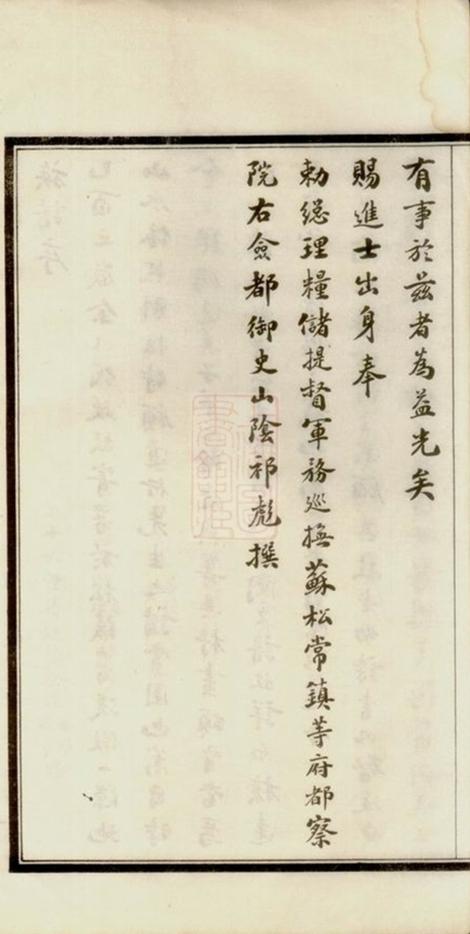 有事於兹者為益光矣
賜進士出身奉
勅總理糧儲提督軍務巡撫蘇松常鎮等府都察
院右僉都御史山陰祁彪撰